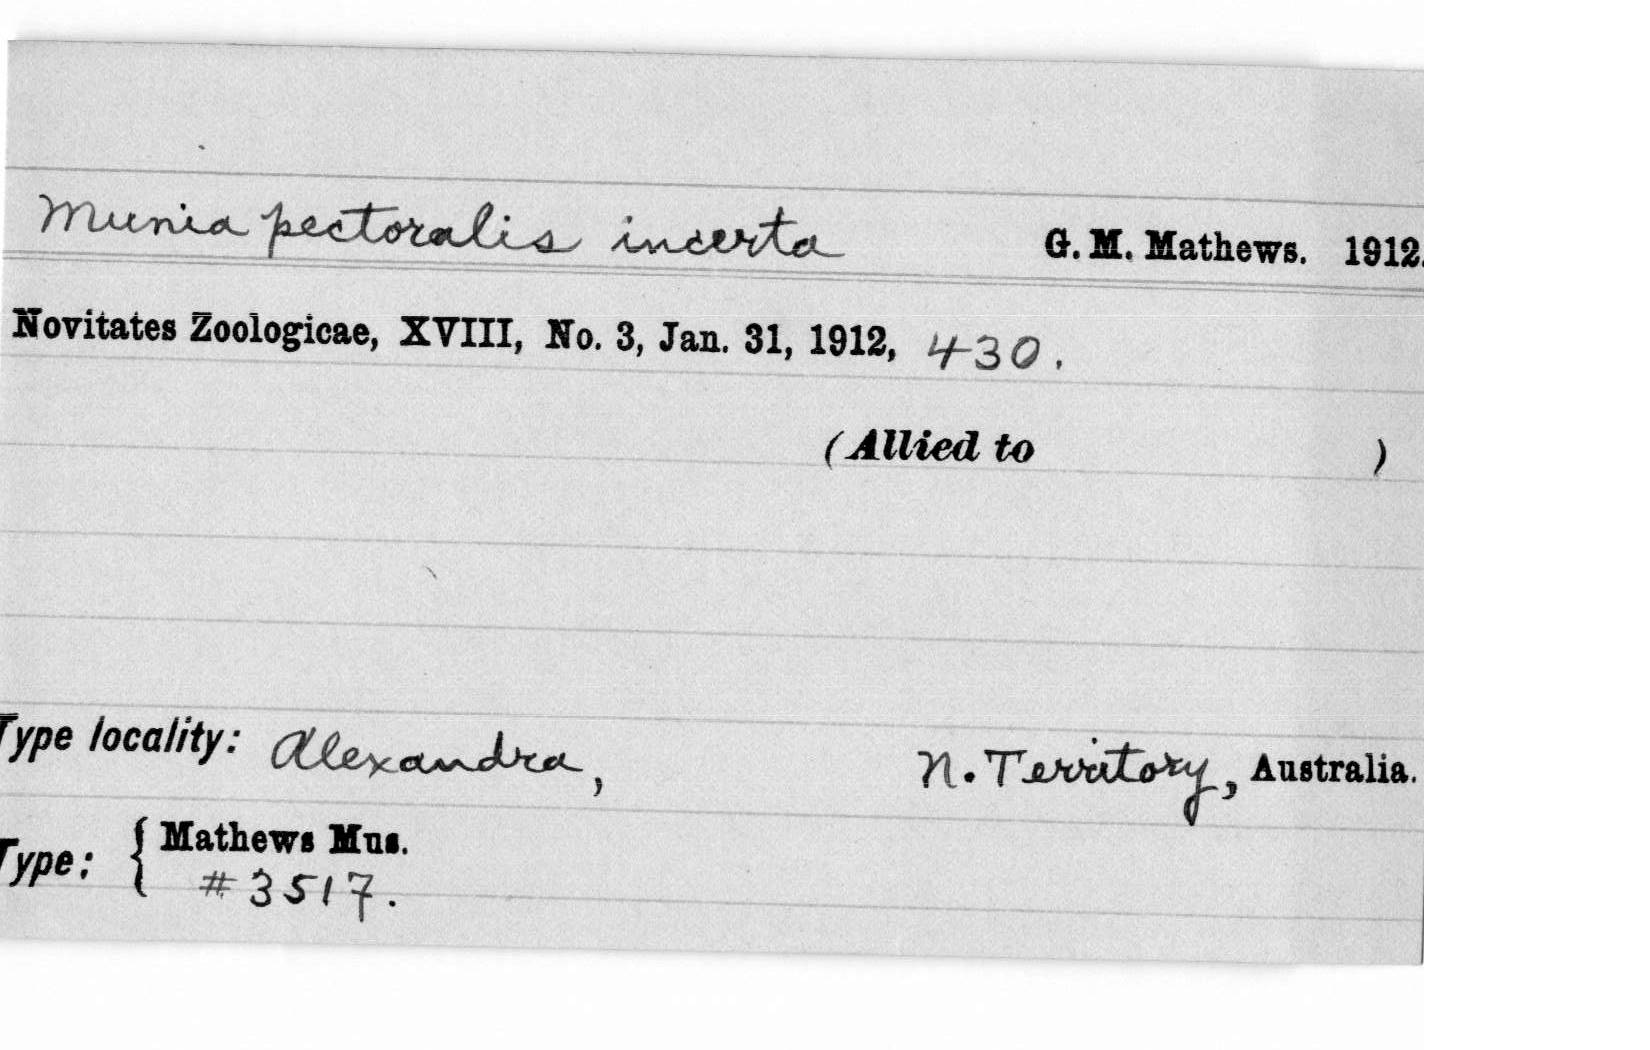 Munia pectoralis incerta G. M. Mathews. 1912.
Novitates Zoologicae, XVIII, No. 3, Jan. 31, 1912, 430.
(Allied to )
Type locality: Alexandra, N. Territory, Australia.
Type: { Mathews Mus.
#3517.